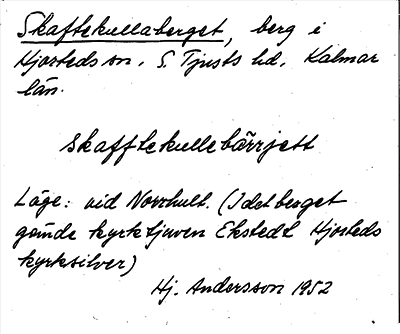 Skaftekullaberget, berg i
Hjorteds sn. S. Tjusts hd. Kalmar
län.
skafftekullebärrjett
Läge: vid Norrhult. (I det berget
gömde kyrktjuven Ekstedt Hjorteds
kyrksilver)
Hj. Andersson 1952